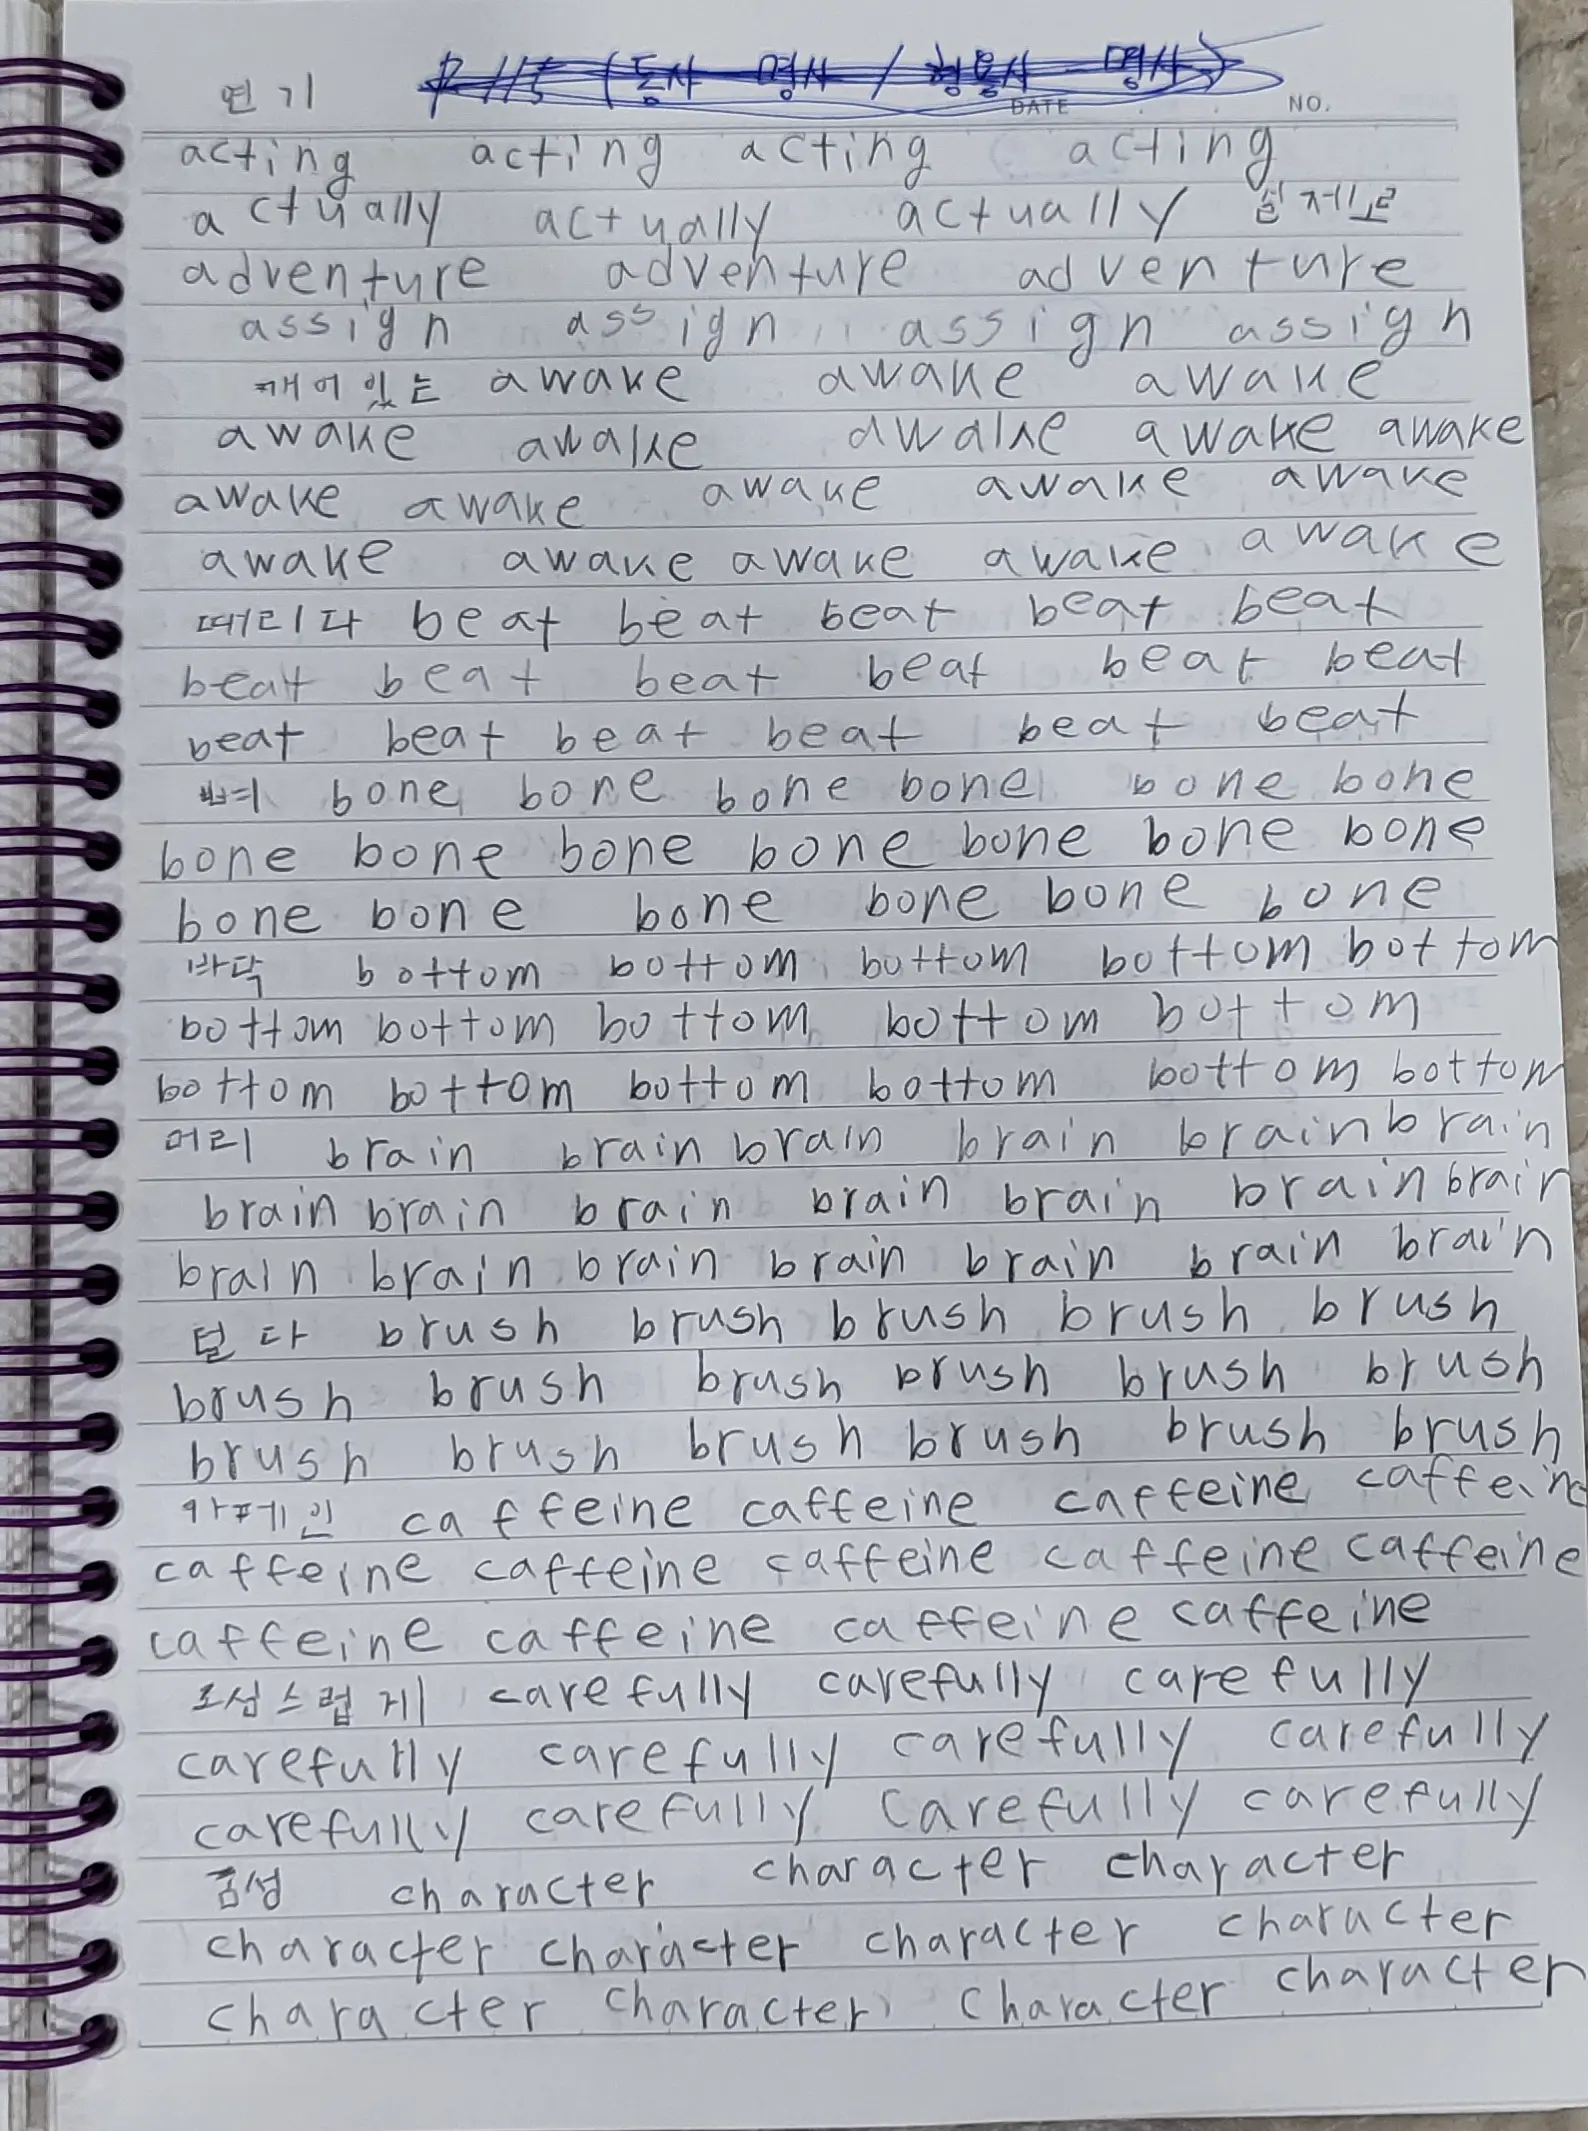 연기 P 115 (동사 명사 / 형용사 명사)
DATE NO.
acting acting acting acting
actually actually actually 실제로
adventure adventure adventure
assign assign assign assign
깨어있는 awake awake awake
awake awake awake awake awake
awake awake awake awake awake
awake awake awake awake awake
때리다 beat beat beat beat beat
beat beat beat beat beat beat
beat beat beat beat beat beat
뼈 bone bone bone bone bone bone
bone bone bone bone bone bone bone
bone bone bone bone bone bone
바닥 bottom bottom bottom bottom bottom
bottom bottom bottom bottom bottom
bottom bottom bottom bottom bottom bottom
머리 brain brain brain brain brain brain
brain brain brain brain brain brain brain
brain brain brain brain brain brain brain
털다 brush brush brush brush brush
brush brush brush brush brush brush
brush brush brush brush brush brush
카페인 caffeine caffeine caffeine caffeine
caffeine caffeine caffeine caffeine caffeine
caffeine caffeine caffeine caffeine
조심스럽게 carefully carefully carefully
carefully carefully carefully carefully
carefully carefully carefully carefully
character character character
character character character character
character character character character